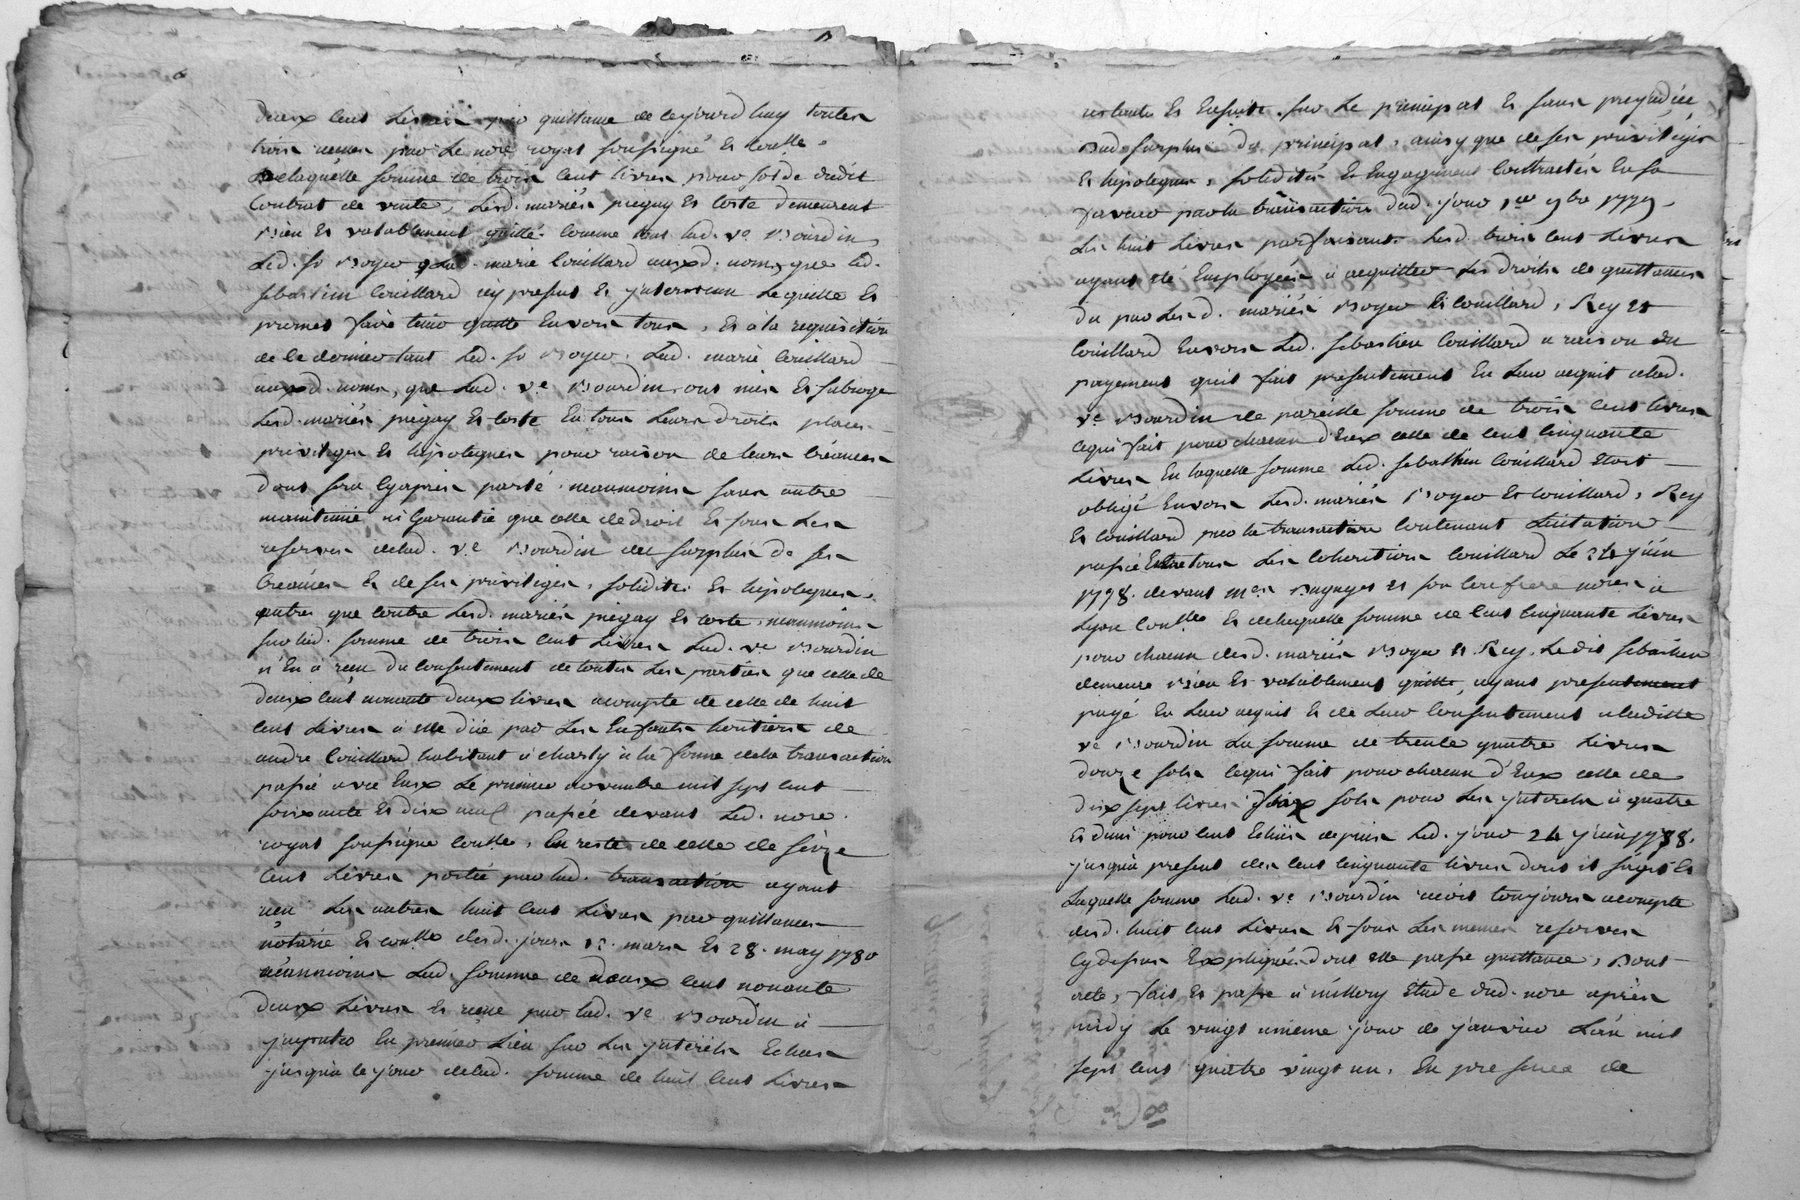 deux cent livres par quittance de cejourd huy toutes
trois recues par le nore royal soussigné et coulle
De laquelle somme de trois cent livres pour solde dudit
Contrat de vente, Lesd. mariés piegay et coste demeurent
bien et valablement quitte comme tout lad. ve Bourdin
Led. sr Boyer q Lad. marie Couillard auxd. noms, que led.
sebastien Couillard icy present et intervenu
promet faire tenir quitte Envers tous, Et à la requisition
de ce dernier tant Led. sr Boyer, Lad. marie Couillard
auxd. noms, que Lad. ve Bourdin ont mis Et subroge
Lesd. mariés piegay Et coste En tous Leurs droits places
privileges Et hipoteques pour raison de leurs Créances
dont sera Cyaprès parlé neanmoins sans autre
maintenue ni Garantie que celle de droit Et sous Les
reserves delad. ve Bourdin du surplus de ses
Créances Et de ses privileges, solidités Et hipoteques,
autres que contre Lesd. mariés piegay Et coste, neanmoins
sur lad. somme de trois cent Livres Lad. ve Bourdin
n'En a reçu du consentement de toutes Les parties que celle de
deux cent nonante deux livres acompte de celle de huit
cent Livres à elle düe par Les Enfants heritiers de
andré Couillard habitant à charly à la forme dela transaction
passé avec Eux Le premier novembre mil sept cent
soixante Et dix neuf passée devant Led. nore
royal soussigné coulle, En reste de celle de seize
cent Livres portée par lad. transaction ayant
recu Les autres huit cent Livres par quittances
notarié Et coulle desd. jours 12. mars Et 28. may 1780
neanmoins Lad. somme de deux cent nonante
deux Livres Et reçue par lad. ve Bourdin à
imputer En premier Lieu sur Les interêts Echus
jusqu'à ce jour delad. somme de huit cent Livres
restante Et Ensuite sur Le principal Et sans prejudice
Dud. surplus du principal, ainsy que de ses privileges
Et hipoteques, solidités Et Engagement Contractés En sa
faveur par la transaction dud. jour 1er 9bre 1779.
Les huit Livres parfaisant Lesd. trois cent Livres
ayant été Employées à acquitter Les droits de quittances
du par Lesd. mariés Boyer Et Couillard, Rey Et
Couillard Envers Led. sebastien Couillard a raison du
payement quil fait presentement En Leur acquit alad.
ve Bourdin de pareille somme de trois cent livres
cequi fait pour chacun d'Eux celle de cent cinquante
Livres En laquelle somme Led. sebastien Couillard Etoit
obligé Envers Lesd. mariés Boyer Et Couillard, Rey
Et Couillard par la transaction Contenant Licitation
passée Entre tous Les Coheritiers Couillard Le 24 juin
1778. devant mes Bagnyes Et son Confrere nores à
Lyon Coulle Et delaquelle somme de cent cinquante Livres
pour chacun desd. mariés Boyer Et Rey. Ledit sebastien
demeure bien Et valablement quitte, ayant presentement
payé En Leur acquit Et de Leur consentement aladitte
ve Bourdin La somme de trente quatre Livres
douze sols cequi fait pour chacun d'Eux celle de
dix sept livres six sols pour Les interets à quatre
Et demi pour cent Echus depuis Led. jour 24 juin 1778.
jusqu'à present des cent cinquante livres dont il s'agit Et
Laquelle somme Lad. ve Bourdin recoit toujours acompte
desd. huit cent Livres Et sous Les memes reserves
Cydessus Expliquées dont elle passe quittance, Dont
acte, fait Et passé à millery Etude dud. nore après
midy Le vingt unieme jour de janvier L'an mil
sept cent quatre vingt un. En presence de